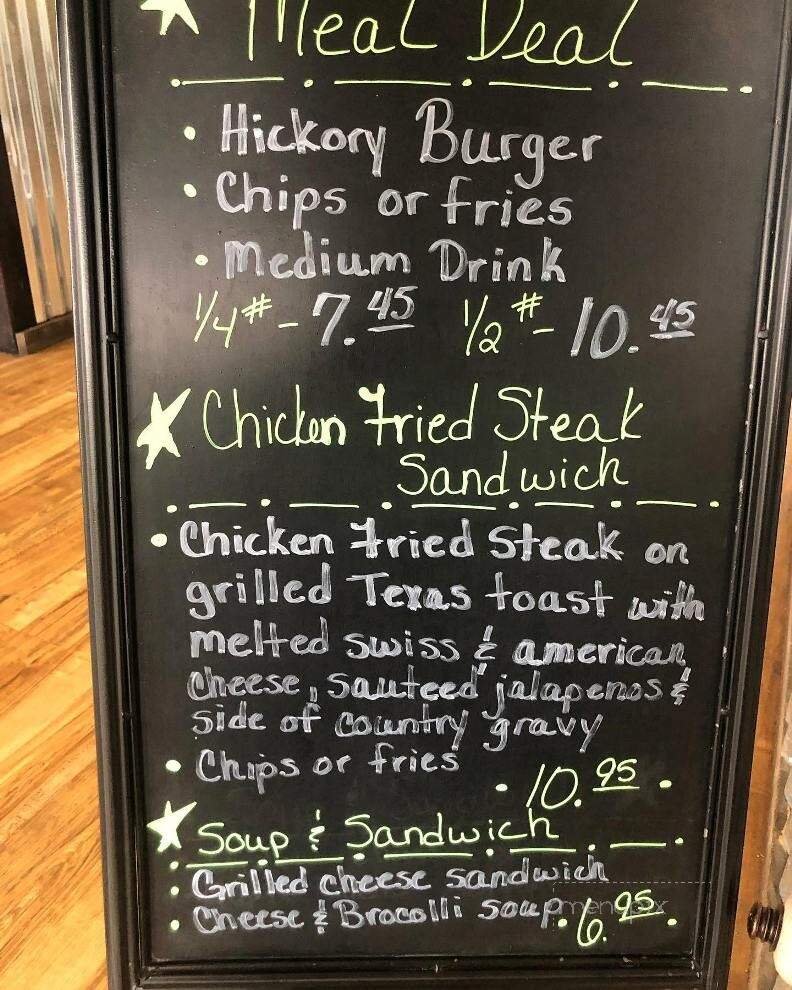 Meal Deal
• Hickory Burger
• Chips or fries
• Medium Drink
1/4# - 7.45 1/2# - 10.45
Chicken Fried Steak
Sandwich
• Chicken Fried Steak on
grilled Texas toast with
melted swiss & american
cheese, sauteed jalapenos &
side of country gravy
• Chips or fries
• 10.95 •
Soup & Sandwich
• Grilled cheese sandwich
• Cheese & Brocolli soup • 6.95 •
menupix